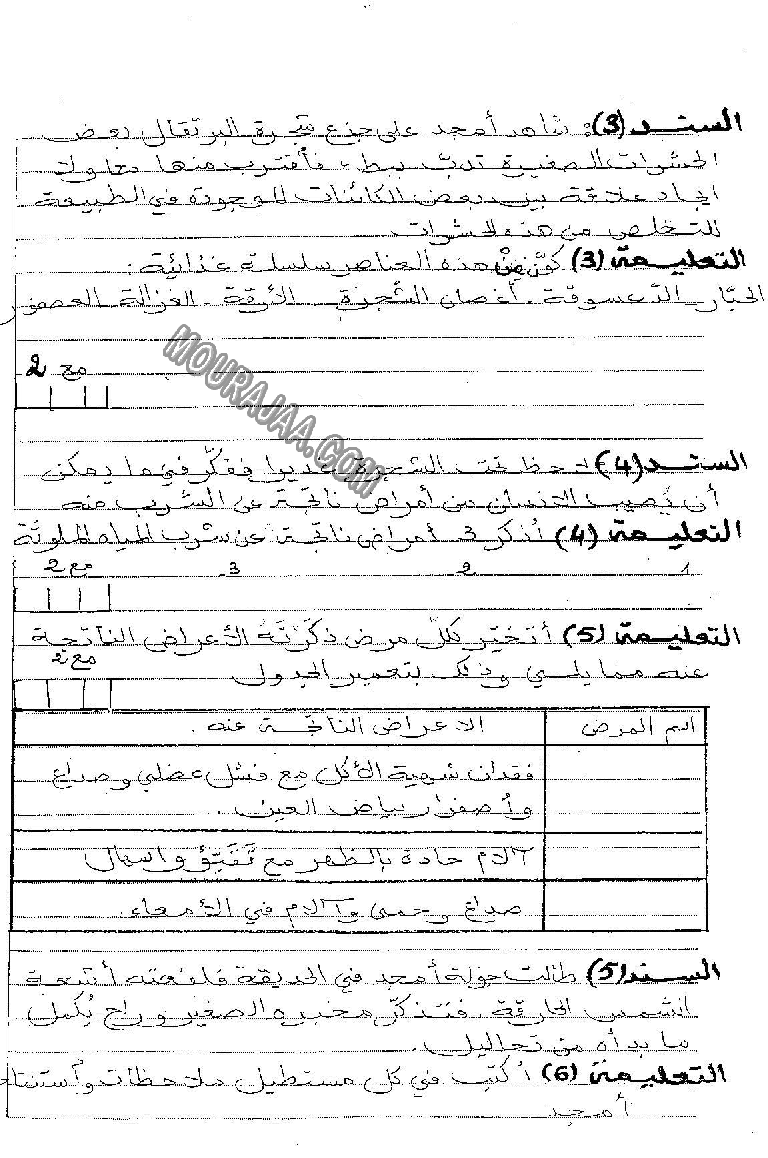 السند (3): شاهد أمجد على جذع شجرة البرتقال بعض
الحشرات الصغيرة تدبّ ببطء فأقترب منها محاولا
ايجاد علاقة بين بعض الكائنات الموجودة في الطبيعة
للتخلص من هذه الحشرات
التعليمة (3) كوّن من هذه العناصر سلسلة غذائية:
الحبّار الدّعسوقة. أغصان الشّجرة الأرقة. الغزالة العصفور
مع 2
MOURAJAA.COM
السند (4) لاحظ تحت الشجرة غديرا ففكّر في ما يمكن
أن يُصيب الانسان من أمراض ناتجة عن الشرب منه
التعليمة (4) أذكر 3 أمراض ناتجة عن شرب المياه الملوثة
1 2 3 مع 2
التعليمة (5) أتخيّر لكلّ مرض ذكرته الأعراض الناتجة
عنه مما يلي وذلك بتعمير الجدول
مع 2
اسم المرض الاعراض الناتجة عنه.
فقدان شهية الأكل مع فشل عضلي وصداع
وأصفرار بياض العين.
آلام حادة بالظهر مع تَقَيُّؤ واسهال
صداع وحمى وآلام في الأمعاء.
السند (5) طالت جولة أمجد في الحديقة فلفحته أشعة
الشمس الحارقة. فتذكّر مخبره الصغير وراح يُكمل
ما بدأه من تحاليل.
التعليمة (6) أكتب في كل مستطيل ملاحظات وأستنتاجات
أمجد